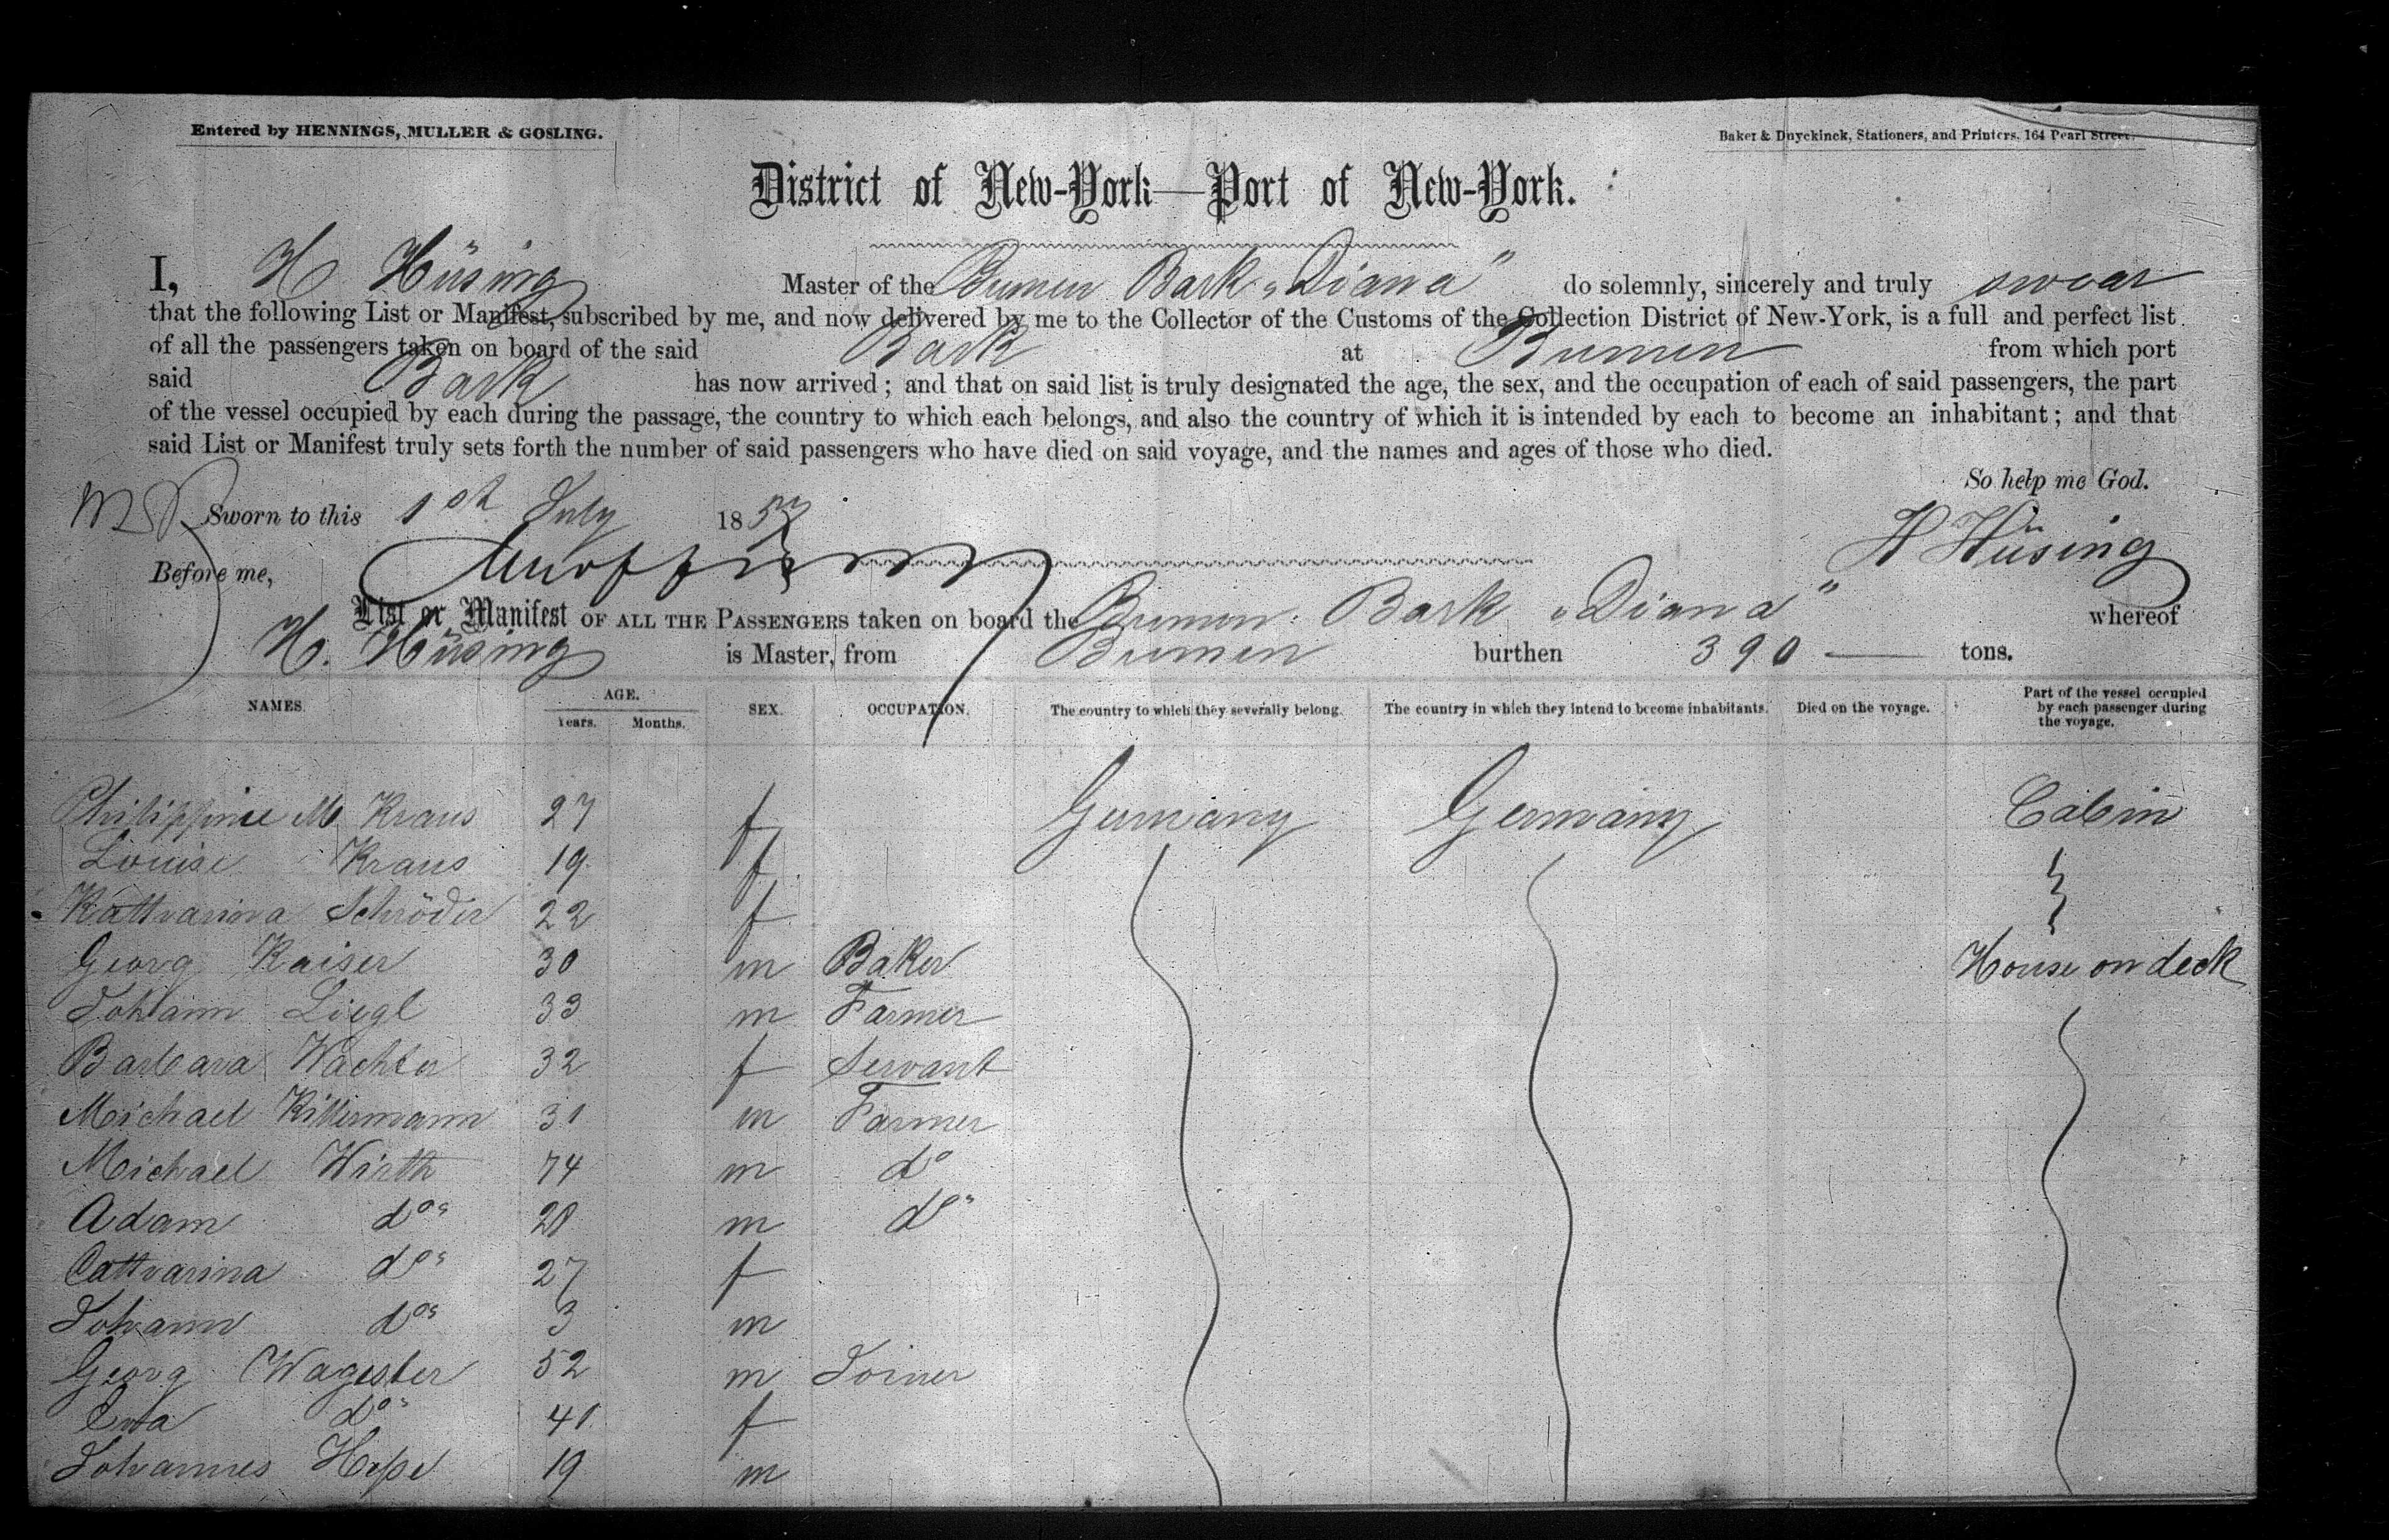 Entered by HENNINGS, MULLER & GOSLING.
Baker & Duyckinck, Stationers, and Printers, 164 Pearl Street.
District of New-York—Port of New-York.
I, H Hüsing Master of the Bremen Bark „Diana" do solemnly, sincerely and truly swear
that the following List or Manifest, subscribed by me, and now delivered by me to the Collector of the Customs of the Collection District of New-York, is a full and perfect list
of all the passengers taken on board of the said Bark at Bremen from which port
said Bark has now arrived; and that on said list is truly designated the age, the sex, and the occupation of each of said passengers, the part
of the vessel occupied by each during the passage, the country to which each belongs, and also the country of which it is intended by each to become an inhabitant; and that
said List or Manifest truly sets forth the number of said passengers who have died on said voyage, and the names and ages of those who died.
So help me God.
Sworn to this 1st July 1853
H Hüsing
Before me,
List or Manifest OF ALL THE PASSENGERS taken on board the Bremen Bark „Diana" whereof
H. Hüsing is Master, from Bremen burthen 390 — tons.
NAMES. AGE. Years. Months. SEX. OCCUPATION. The country to which they severally belong. The country in which they intend to become inhabitants. Died on the voyage. Part of the vessel occupied by each passenger during the voyage.
Philippine M Kraus 27 f Germany Germany Cabin
Louise Kraus 19 f
Kattharina Schröder 22 f
Georg Kaiser 30 m Baker House on deck
Johann Liegl 33 m Farmer
Barbara Wachter 32 f Servant
Michael 31 m Farmer
Michael Wirth 74 m do
Adam do 28 m do
Cattharina do 27 f
Johann do 3 m
Georg 52 m Joiner
Eva do 41 f
Johannes 19 m